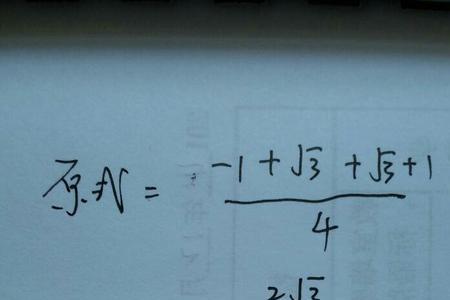 原式 = (-1 + √3 + √3 + 1) / 4
2√3